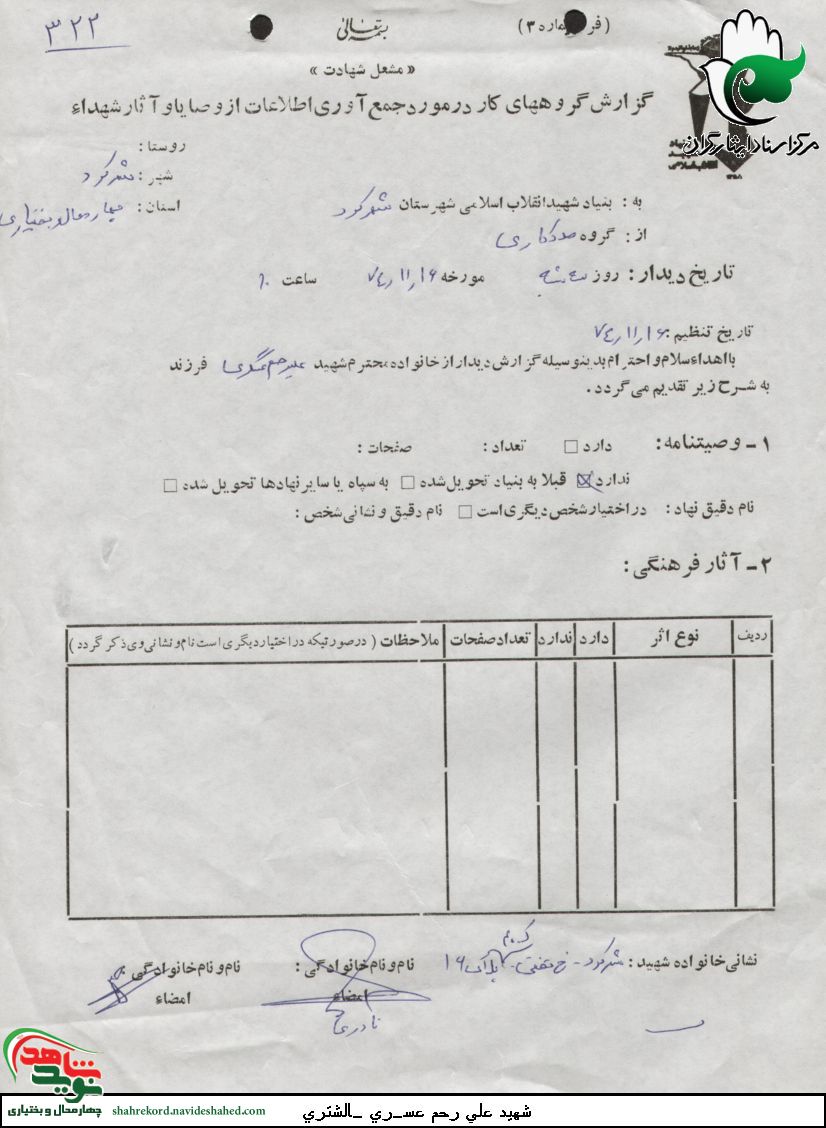 ۳۲۲
بسمه تعالی
(فر ماره ۳)
« مشعل شهادت »
گزارش گروههای کار در مورد جمع آوری اطلاعات از وصایا و آثار شهداء
مرکز اسناد ایثارگران
روستا :
شهر : شهرکرد
استان : چهارمحال و بختیاری
به : بنیاد شهید انقلاب اسلامی شهرستان شهرکرد
از : گروه مددکاری
تاریخ دیدار : روز سه شنبه مورخه ۷۴٫۱۱٫۱۶ ساعت ۱۰
تاریخ تنظیم : ۷۴٫۱۱٫۱۶
با اهداء سلام و احترام بدینوسیله گزارش دیدار از خانواده محترم شهید علیرحم عسگری فرزند
به شرح زیر تقدیم می گردد .
۱ - وصیتنامه : دارد □ تعداد : صفحات :
ندارد ☒ قبلا به بنیاد تحویل شده □ به سپاه یا سایر نهادها تحویل شده □
نام دقیق نهاد : در اختیار شخص دیگری است □ نام دقیق و نشانی شخص :
۲ - آثار فرهنگی :
ردیف نوع اثر دارد ندارد تعداد صفحات ملاحظات ( در صورتیکه در اختیار دیگری است نام و نشانی وی ذکر گردد )
نشانی خانواده شهید : شهرکرد - خ مفتح - پلاک ۱۶
نام و نام خانوادگی :
امضاء
نام و نام خانوادگی :
امضاء
شاهد نوید
چهارمحال و بختیاری
shahrekord.navideshahed.com
شهيد علي رحم عسـري ـالشتري